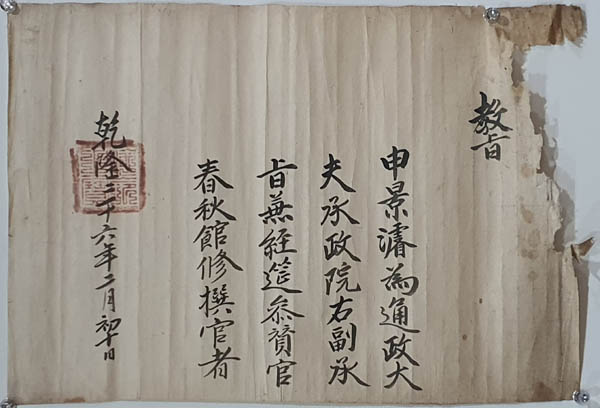 教旨
申景濬為通政大
夫承政院右副承
旨兼經筵叅賛官
春秋館修撰官者
乾隆三十六年二月初十日